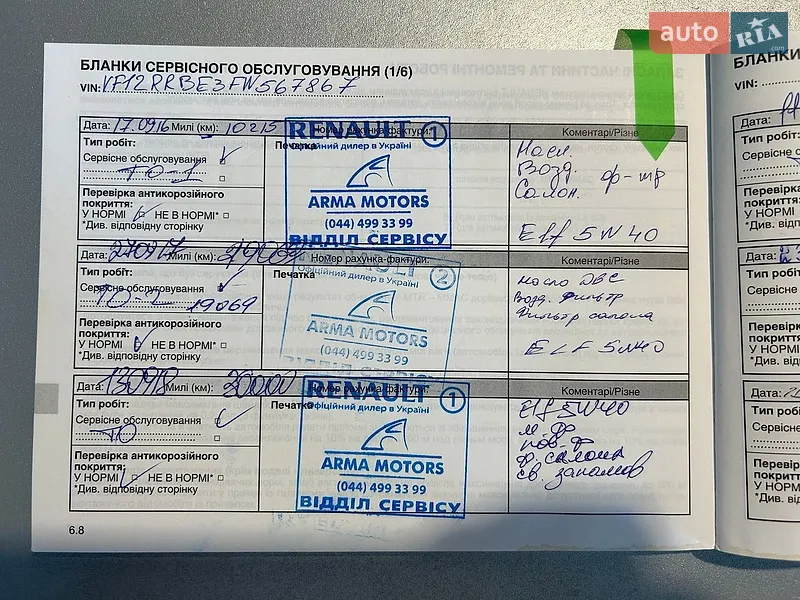 auto RIA .com
БЛАНКИ СЕРВІСНОГО ОБСЛУГОВУВАННЯ (1/6)
VIN: VF12RRBE3FW567867
Дата: 17.0916 Милі (км): 10215 Номер рахунка-фактури: Коментарі/Різне
Тип робіт:
Сервісне обслуговування
ТО-1
Печатка
RENAULT 1
Офіційний дилер в Україні
ARMA MOTORS
(044) 499 33 99
ВІДДІЛ СЕРВІСУ
Масл.
Возд.
Салон. ф-тр
Elf 5W40
Перевірка антикорозійного
покриття:
У НОРМІ НЕ В НОРМІ*
*Див. відповідну сторінку
Дата: 270917 Милі (км): Номер рахунка-фактури: Коментарі/Різне
Тип робіт:
Сервісне обслуговування
ТО-2 19069
Печатка
RENAULT 2
Офіційний дилер в Україні
ARMA MOTORS
(044) 499 33 99
ВІДДІЛ СЕРВІСУ
Масло ДВС
Возд. Фильтр
Фильтр салона
ELF 5W40
Перевірка антикорозійного
покриття:
У НОРМІ НЕ В НОРМІ*
*Див. відповідну сторінку
Дата: 130918 Милі (км): 30000 Номер рахунка-фактури: Коментарі/Різне
Тип робіт:
Сервісне обслуговування
ТО
Печатка
RENAULT 1
Офіційний дилер в Україні
ARMA MOTORS
(044) 499 33 99
ВІДДІЛ СЕРВІСУ
Elf 5W40
м. фр
пов. ф
ф. салона
св. запалов
Перевірка антикорозійного
покриття:
У НОРМІ НЕ В НОРМІ*
*Див. відповідну сторінку
6.8
БЛАНКИ
VIN:
Дата:
Тип робіт:
Сервісне
Перевірка
покриття:
У НОРМІ
*Див. від
Дата:
Тип робіт:
Сервісне
Перевірка
покриття:
У НОРМІ
*Див. від
Дата:
Тип робіт:
Сервісне
Перевірка
покриття:
У НОРМІ
*Див. від